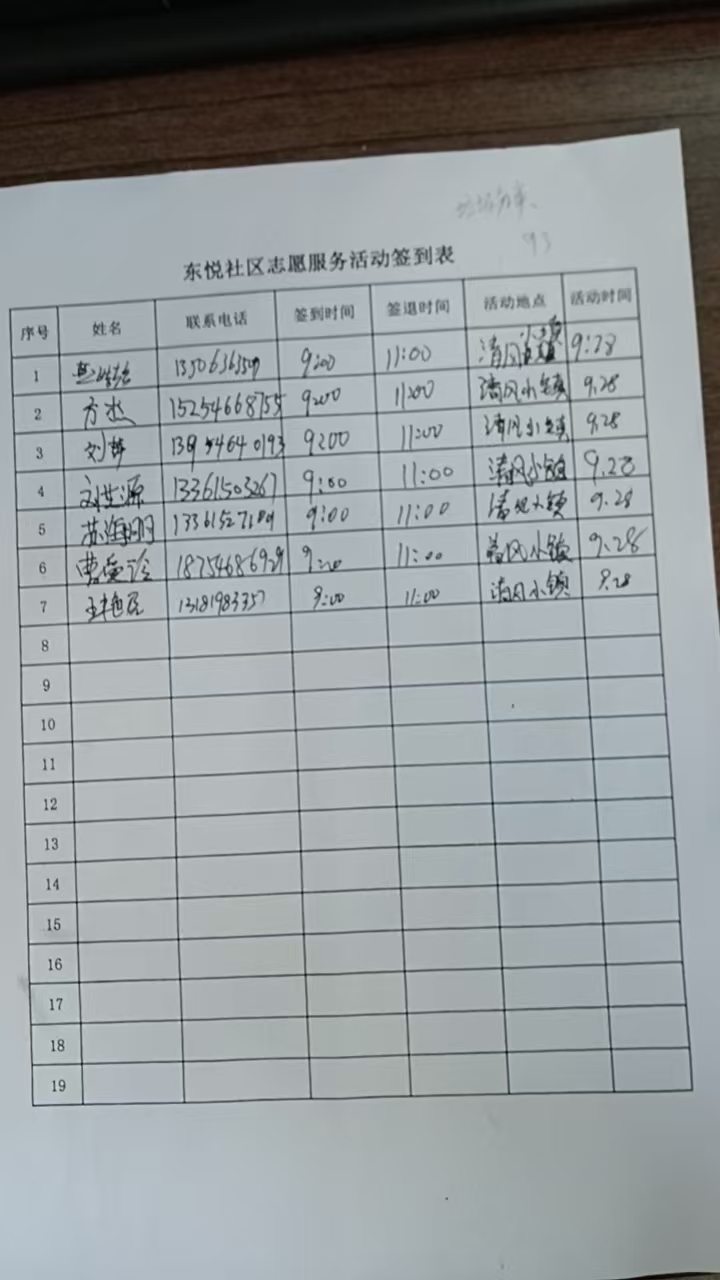 93
东悦社区志愿服务活动签到表
序号 姓名 联系电话 签到时间 签退时间 活动地点 活动时间
1 9:00 11:00 清风小镇 9:28
2 方杰 15254668755 9:00 11:00 清风小镇 9.28
3 刘 9:00 11:00 清风小镇 9.28
4 刘生源 13361503267 9:00 11:00 清风小镇 9.28
5 苏海明 9:00 11:00 清风小镇 9.28
6 曹爱玲 18754686929 11:00 清风小镇 9.28
7 王艳民 9:00 11:00 清风小镇 9.28
8
9
10
11
12
13
14
15
16
17
18
19